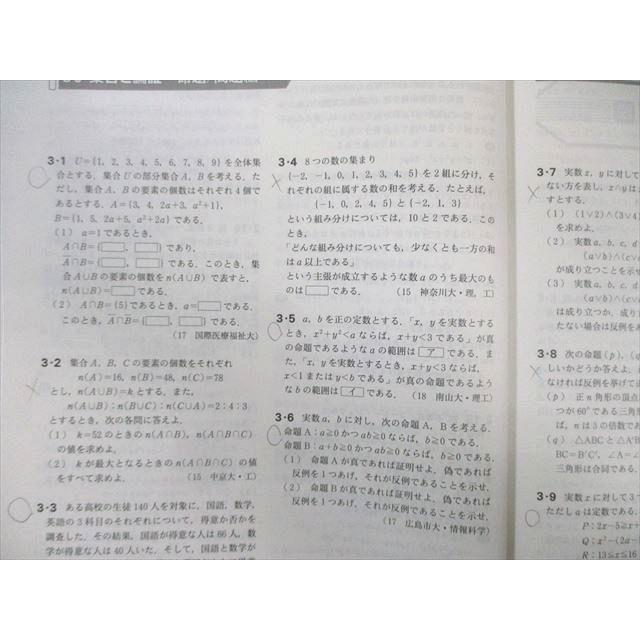 3・1 U={1, 2, 3, 4, 5, 6, 7, 8, 9} を全体集
合とする．集合Uの部分集合A，Bを考える．た
だし，集合A，Bの要素の個数はそれぞれ4個で
あるとする．A={3, 4, 2a+3, a²+1},
B={1, 5, 2a+5, a²+2a} である．
(1) a=1であるとき，
であり，
である．このとき，集
合A∪Bの要素の個数をn(A∪B)で表すと，
n(A∪B)= である．
(2) A∩B={5}であるとき，a= である．
である．
(17 国際医療福祉大)
3・2 集合A，B，Cの要素の個数をそれぞれ
n(A)=16, n(B)=48, n(C)=78
とし，n(A∪B)=kとする．また，
n(A∪B)：n(B∪C)：n(C∪A)=2：4：3
とするとき，次の各問に答えよ．
(1) k=52のときのn(A∩B)，n(A∩B∩C)
の値を求めよ．
(2) kが最大となるときのn(A∩B∩C)の値
をすべて求めよ． (15 中京大・工)
3・3 ある高校の生徒140人を対象に，国語，数学，
英語の3科目のそれぞれについて，得意か否かを
調査した．その結果，国語が得意な人は86人，数
学が得意な人は40人いた．そして，国語と数学が
3・4 8つの数の集まり
{-2, -1, 0, 1, 2, 3, 4, 5} を2組に分け，そ
れぞれの組に属する数の和を考える．たとえば，
{-1, 0, 2, 4, 5} と {-2, 1, 3}
という組み分けについては，10と2である．この
とき，
「どんな組み分けについても，少なくとも一方の和
はa以上である」
という主張が成立するような数aのうち最大のも
のは である． (15 神奈川大・理，工)
3・5 a，bを正の定数とする．「x，yを実数とする
とき，x²+y²<aならば，x+y<3である」が真
の命題であるようなaの範囲は ア である．ま
た，「x，yを実数とするとき，x+y<3ならば，
x<1またはy<bである」が真の命題であるよう
なbの範囲は イ である． (18 南山大・理工)
3・6 実数a，bに対し，次の命題A，Bを考える．
命題A：a≧0かつab≧0ならば，b≧0である．
命題B：a+b≧0かつab≧0ならば，b≧0である．
(1) 命題Aが真であれば証明せよ．偽であれば
反例を1つあげ，それが反例であることを示せ．
(2) 命題Bが真であれば証明せよ．偽であれば
反例を1つあげ，それが反例であることを示せ．
(17 広島市大・情報科学)
3・7 実数x，yに対して
ない方を表し，x∧yは
すとする．
(1) (1∨2)∧(3∨4)
を求めよ．
(2) 実数a，b，c，d
(a∨b)∧(c∨
が成り立つことを示せ
(3) 実数a，b，c，d
(a∨b)∧(c∨
は成り立つか．成り
たない場合は反例を
3・8 次の命題(p)，(q
しいかどうか答えよ．
なければ反例を挙げて
(p) 正n角形の頂点
つが60°である三角
ば，nは3の倍数であ
(q) △ABCと△A'B
BC=B'C'，∠A=∠
三角形は合同である．
3・9 実数xに対して3
ただしaは定数である．
P：2x-5≧x+
Q：x²-(2a-
R：13≦x≦16